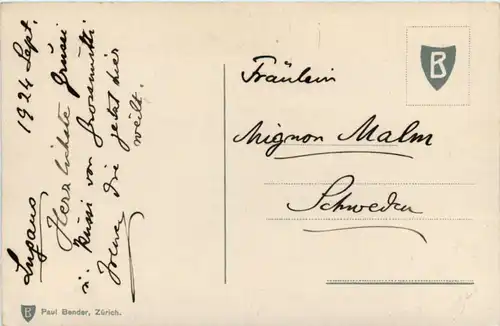 Lugano 1924 Sept.
Herzlichste Grüsse
u. Küsse von Grossmutti
die jetzt hier
weilt.
Fräulein
Mignon Malm
Schweden
B
B Paul Bender, Zürich.